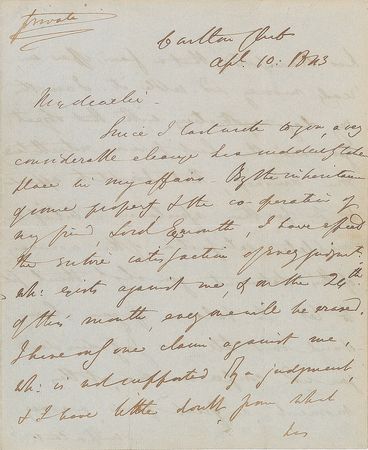 Private
Carlton Club
Apl. 10: 1843
My dear Sir
Since I last wrote to you, a very
considerable change has suddenly taken
place in my affairs. By the inheritance
of some property & the co-operation of
my friend Lord Exmouth, I have effected
the entire satisfaction of every judgment
wh: exists against me, & on the 24th
of this month, every one will be erased.
I have only one claim against me,
wh: is not supported by a judgment,
& I have little doubt, from what
has